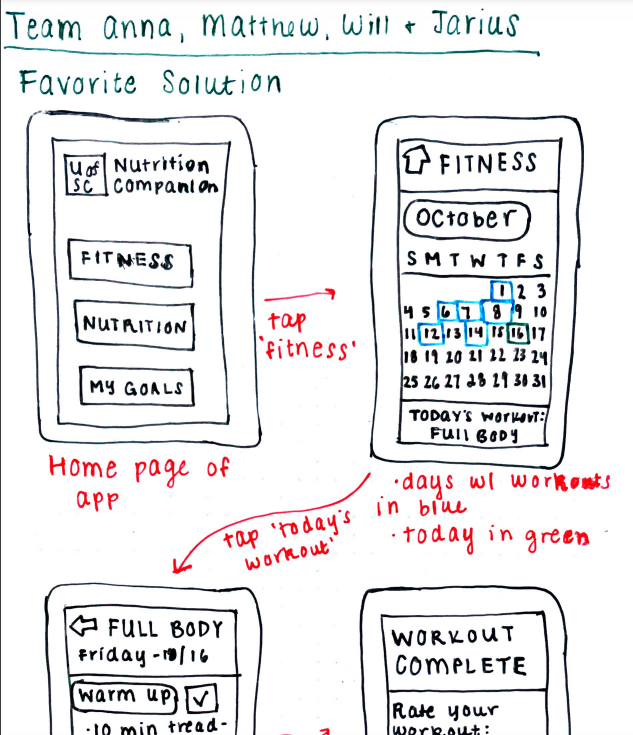 Team anna, Matthew, Will + Jarius
Favorite Solution
U of SC
Nutrition Companion
FITNESS
NUTRITION
MY GOALS
Home page of app
tap 'fitness'
FITNESS
October
S M T W T F S
1 2 3
4 5 6 7 8 9 10
11 12 13 14 15 16 17
18 19 20 21 22 23 24
25 26 27 28 29 30 31
TODAY'S WORKOUT:
FULL BODY
·days w/ workouts in blue
·today in green
tap 'today's workout'
FULL BODY
Friday - 10/16
Warm up
·10 min tread-
WORKOUT
COMPLETE
Rate your
workout: